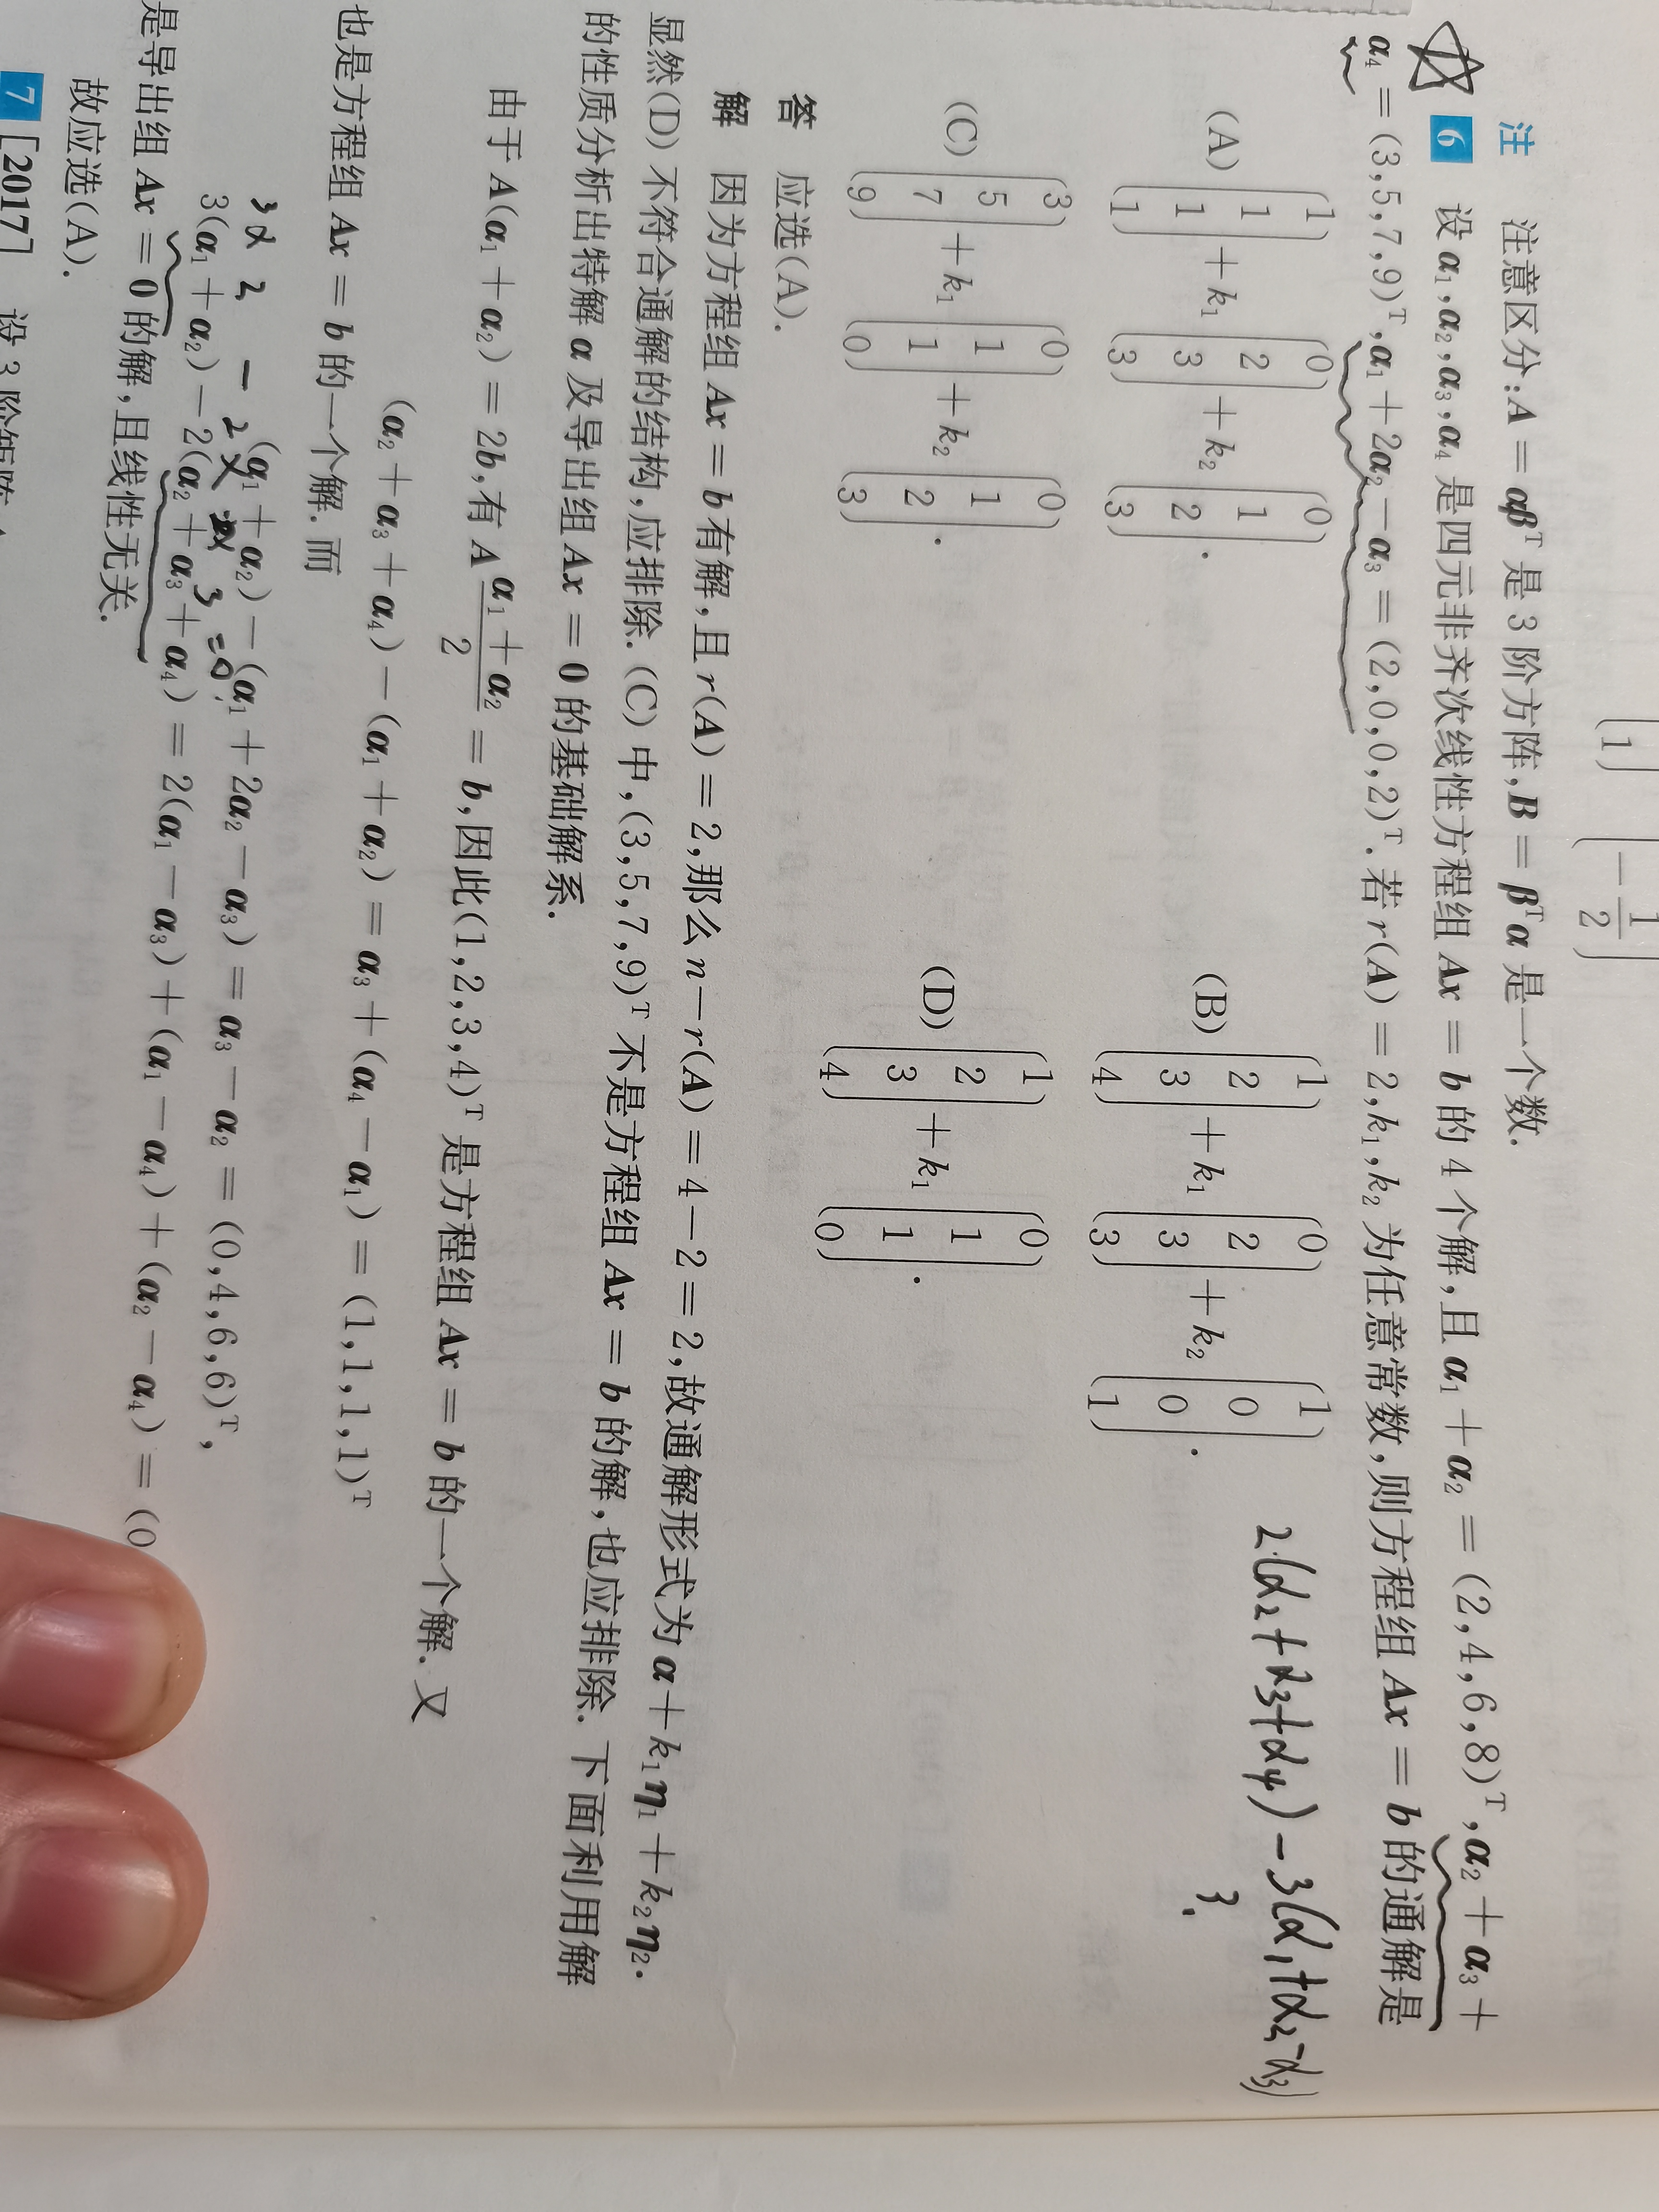 (1) (-1/2)
注 注意区分:A = αβᵀ 是 3 阶方阵,B = βᵀα 是一个数.
6 设 α₁,α₂,α₃,α₄ 是四元非齐次线性方程组 Ax = b 的 4 个解,且 α₁ + α₂ = (2,4,6,8)ᵀ,α₂ + α₃ +
α₄ = (3,5,7,9)ᵀ,α₁ + 2α₂ − α₃ = (2,0,0,2)ᵀ.若 r(A) = 2,k₁,k₂ 为任意常数,则方程组 Ax = b 的通解是
2(α₂+α₃+α₄) − 3(α₁+α₂−α₃)
?.
(A) (1, 1, 1, 1) + k₁ (0, 2, 3, 3) + k₂ (0, 1, 2, 3).
(B) (1, 2, 3, 4) + k₁ (0, 2, 3, 3) + k₂ (1, 0, 0, 1).
(C) (3, 5, 7, 9) + k₁ (0, 1, 1, 0) + k₂ (0, 1, 2, 3).
(D) (1, 2, 3, 4) + k₁ (0, 1, 1, 0).
答 应选(A).
解 因为方程组 Ax = b 有解,且 r(A) = 2,那么 n − r(A) = 4 − 2 = 2,故通解形式为 α + k₁η₁ + k₂η₂.
显然(D) 不符合通解的结构,应排除. (C) 中,(3,5,7,9)ᵀ 不是方程组 Ax = b 的解,也应排除. 下面利用解
的性质分析出特解 α 及导出组 Ax = 0 的基础解系.
由于 A(α₁ + α₂) = 2b,有 A (α₁ + α₂)/2 = b,因此(1,2,3,4)ᵀ 是方程组 Ax = b 的一个解. 又
(α₂ + α₃ + α₄) − (α₁ + α₂) = α₃ + (α₄ − α₁) = (1,1,1,1)ᵀ
也是方程组 Ax = b 的一个解. 而
(α₁ + α₂) − (α₁ + 2α₂ − α₃) = α₃ − α₂ = (0,4,6,6)ᵀ,
3×2 − 2× 3 = 0.
3(α₁ + α₂) − 2(α₂ + α₃ + α₄) = 2(α₁ − α₃) + (α₁ − α₄) + (α₂ − α₄) = (0
是导出组 Ax = 0 的解,且线性无关.
故应选(A).
7 [2017] 设 3 阶矩阵